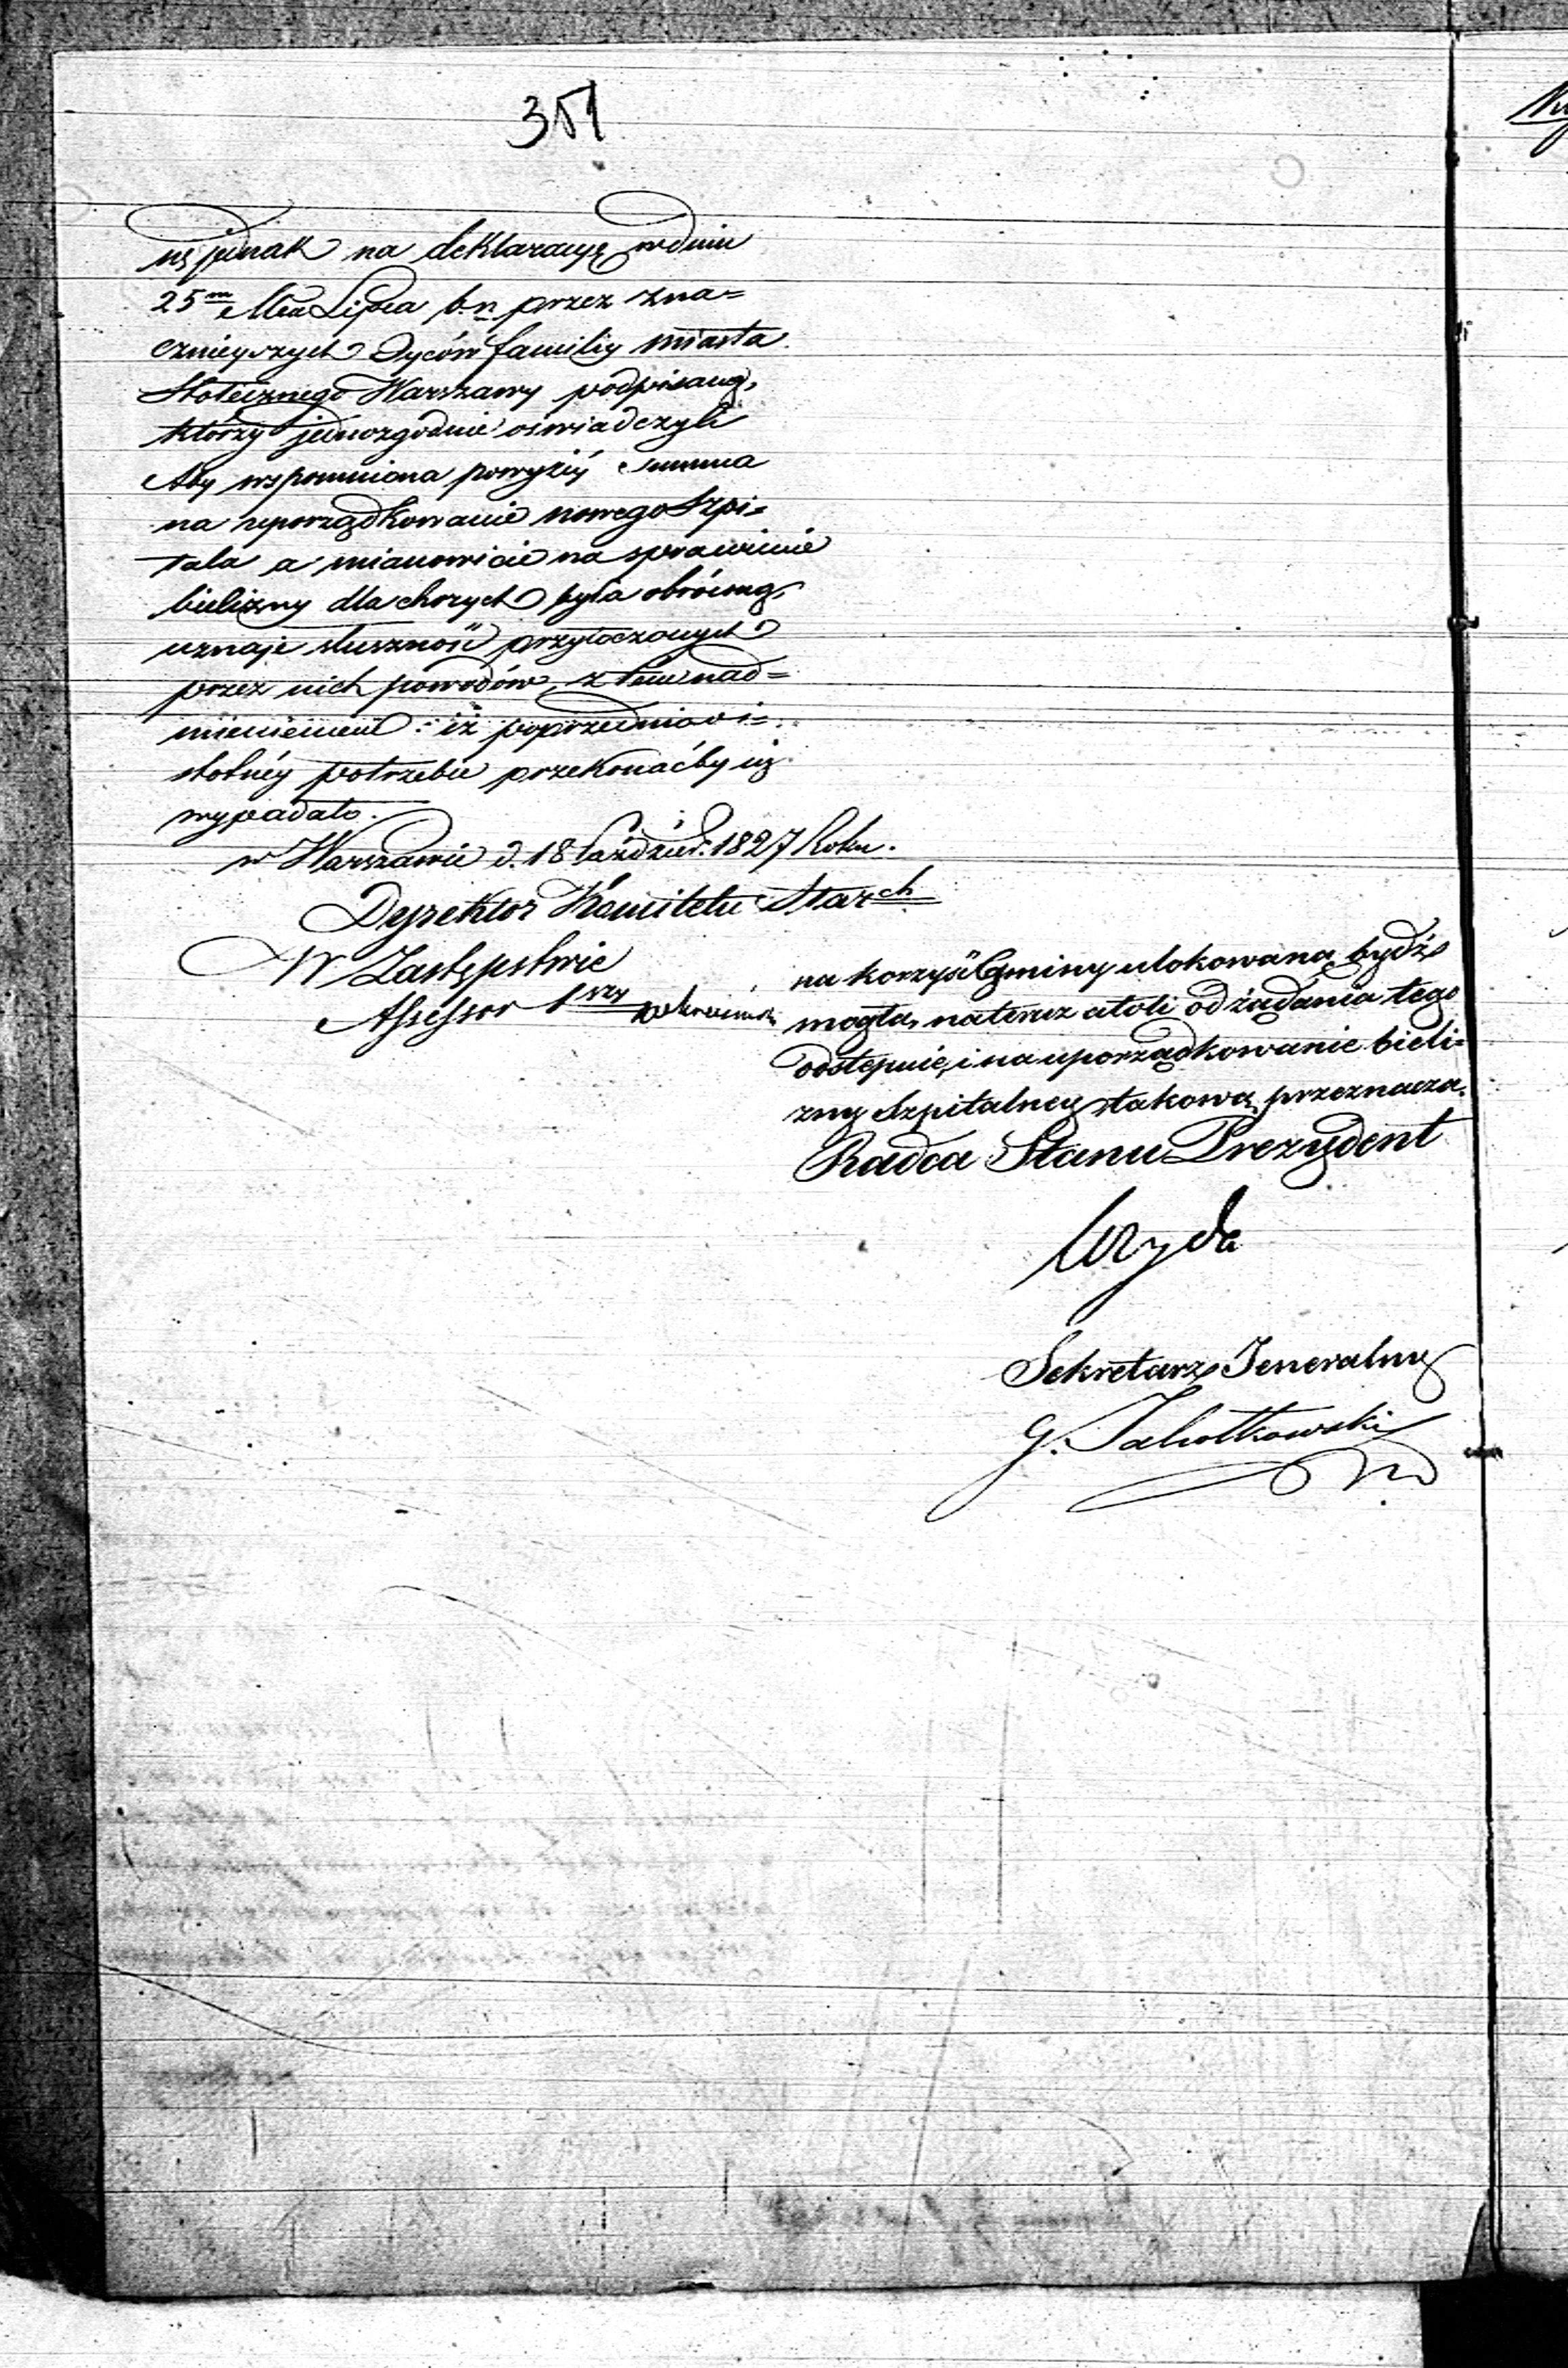 351
jednak na deklaracyę w dniu
25m Mca Lipca b.r. przez zna=
cznieyszych Oyców familiy miasta
Stołecznego Warszawy podpisaną,
którzy jednozgodnie oświadczyli
Aby wspomniona powyżéy Summa
na uporządkowanie nowego Szpi=
tala a mianowicie na sprawienie
bielizny dla chorych była obróconą,
uznaje słuszność przytoczonych
przez nich powodów, z tém nad=
mienieniem: iż poprzednio o i=
stotnéy potrzebie przekonaćby się
wypadało.
w Warszawie d. 18 Paździer: 1827 Roku.
Dyrektor Komitetu Starch
W Zastępstwie
Assessor 1szy
na korzyść Gminy ulokowaną bydź
mogła, nateraz atoli od żądania tego
odstępuie, i na uporządkowanie bieli=
zny Szpitalney takową przeznacza.
Radca Stanu Prezydent
Woyda
Sekretarz Jeneralny
G. Jahołkowski